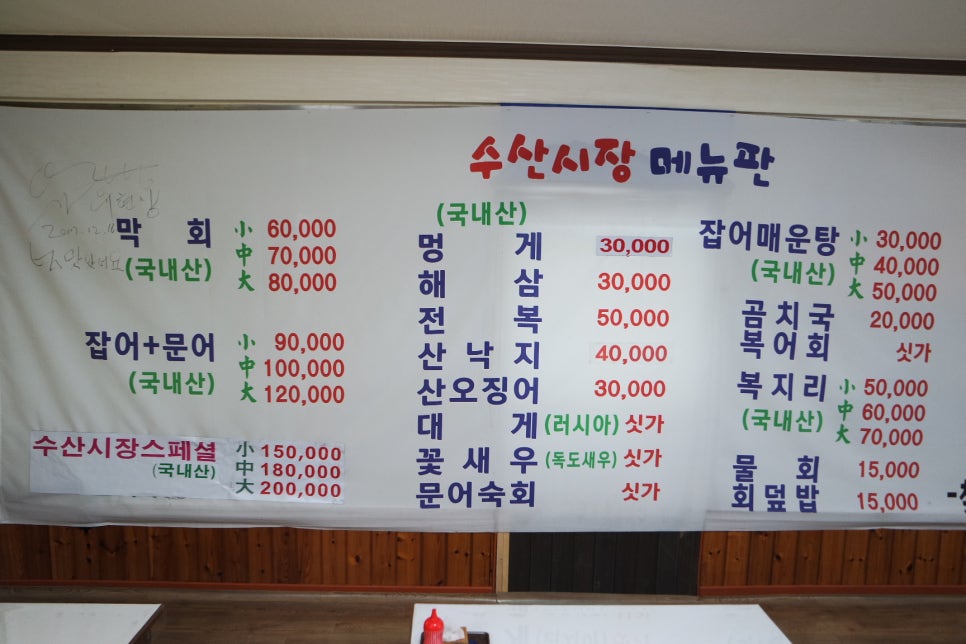 수산시장 메뉴판
막 회 小 60,000
中 70,000
(국내산) 大 80,000
잡어+문어 小 90,000
(국내산) 中 100,000
大 120,000
수산시장스페셜 小 150,000
(국내산) 中 180,000
大 200,000
(국내산)
멍 게 30,000
해 삼 30,000
전 복 50,000
산 낙 지 40,000
산오징어 30,000
대 게 (러시아) 싯가
꽃 새 우 (독도새우) 싯가
문어숙회 싯가
잡어매운탕 小 30,000
(국내산) 中 40,000
大 50,000
곰 치 국 20,000
복 어 회 싯가
복 지 리 小 50,000
(국내산) 中 60,000
大 70,000
물 회 15,000
회 덮 밥 15,000